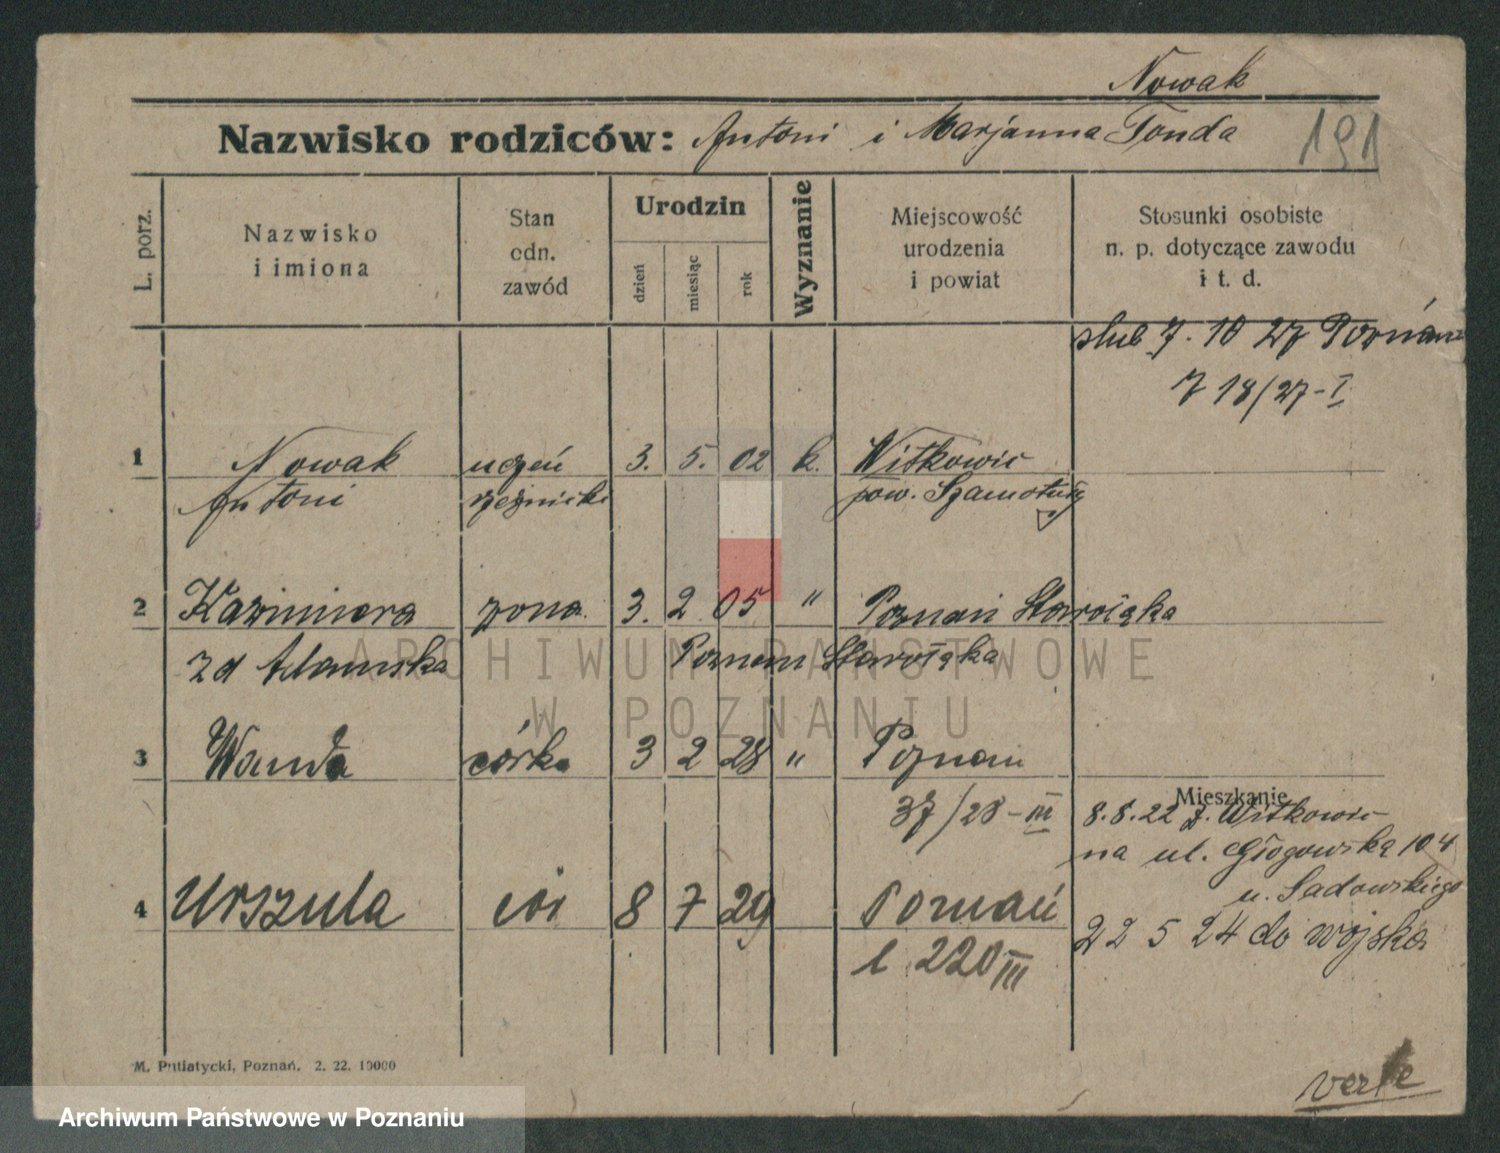 Nowak
Nazwisko rodziców: Antoni i Marjanna Tonda
191
L. porz.
Nazwisko
i imiona
Stan
odn.
zawód
Urodzin
dzień
miesiąc
rok
Wyznanie
Miejscowość
urodzenia
i powiat
Stosunki osobiste
n. p. dotyczące zawodu
i t. d.
ślub 7. 10 27 Poznań
7 18/27-I
1 Nowak uczeń 3. 5. 02 k. Witkowic
Antoni rzeźnicki pow. Szamotuły
2 Kazimiera żona 3. 2 05 " Poznań Starołęka
zd Adamska Poznań Starołęka
3 Wanda córka 3 2 28 " Poznań
37/28-III
Mieszkanie
8.8.22 z. Witkowic
na ul. Głogowską 104
u. Sadowskiego
4 Urszula cór 8 7 29 Poznań
l 220 III
22 5 24 do wojska
M. Putiatycki, Poznań. 2. 22. 10000
verte
ARCHIWUM PAŃSTWOWE
W POZNANIU
Archiwum Państwowe w Poznaniu